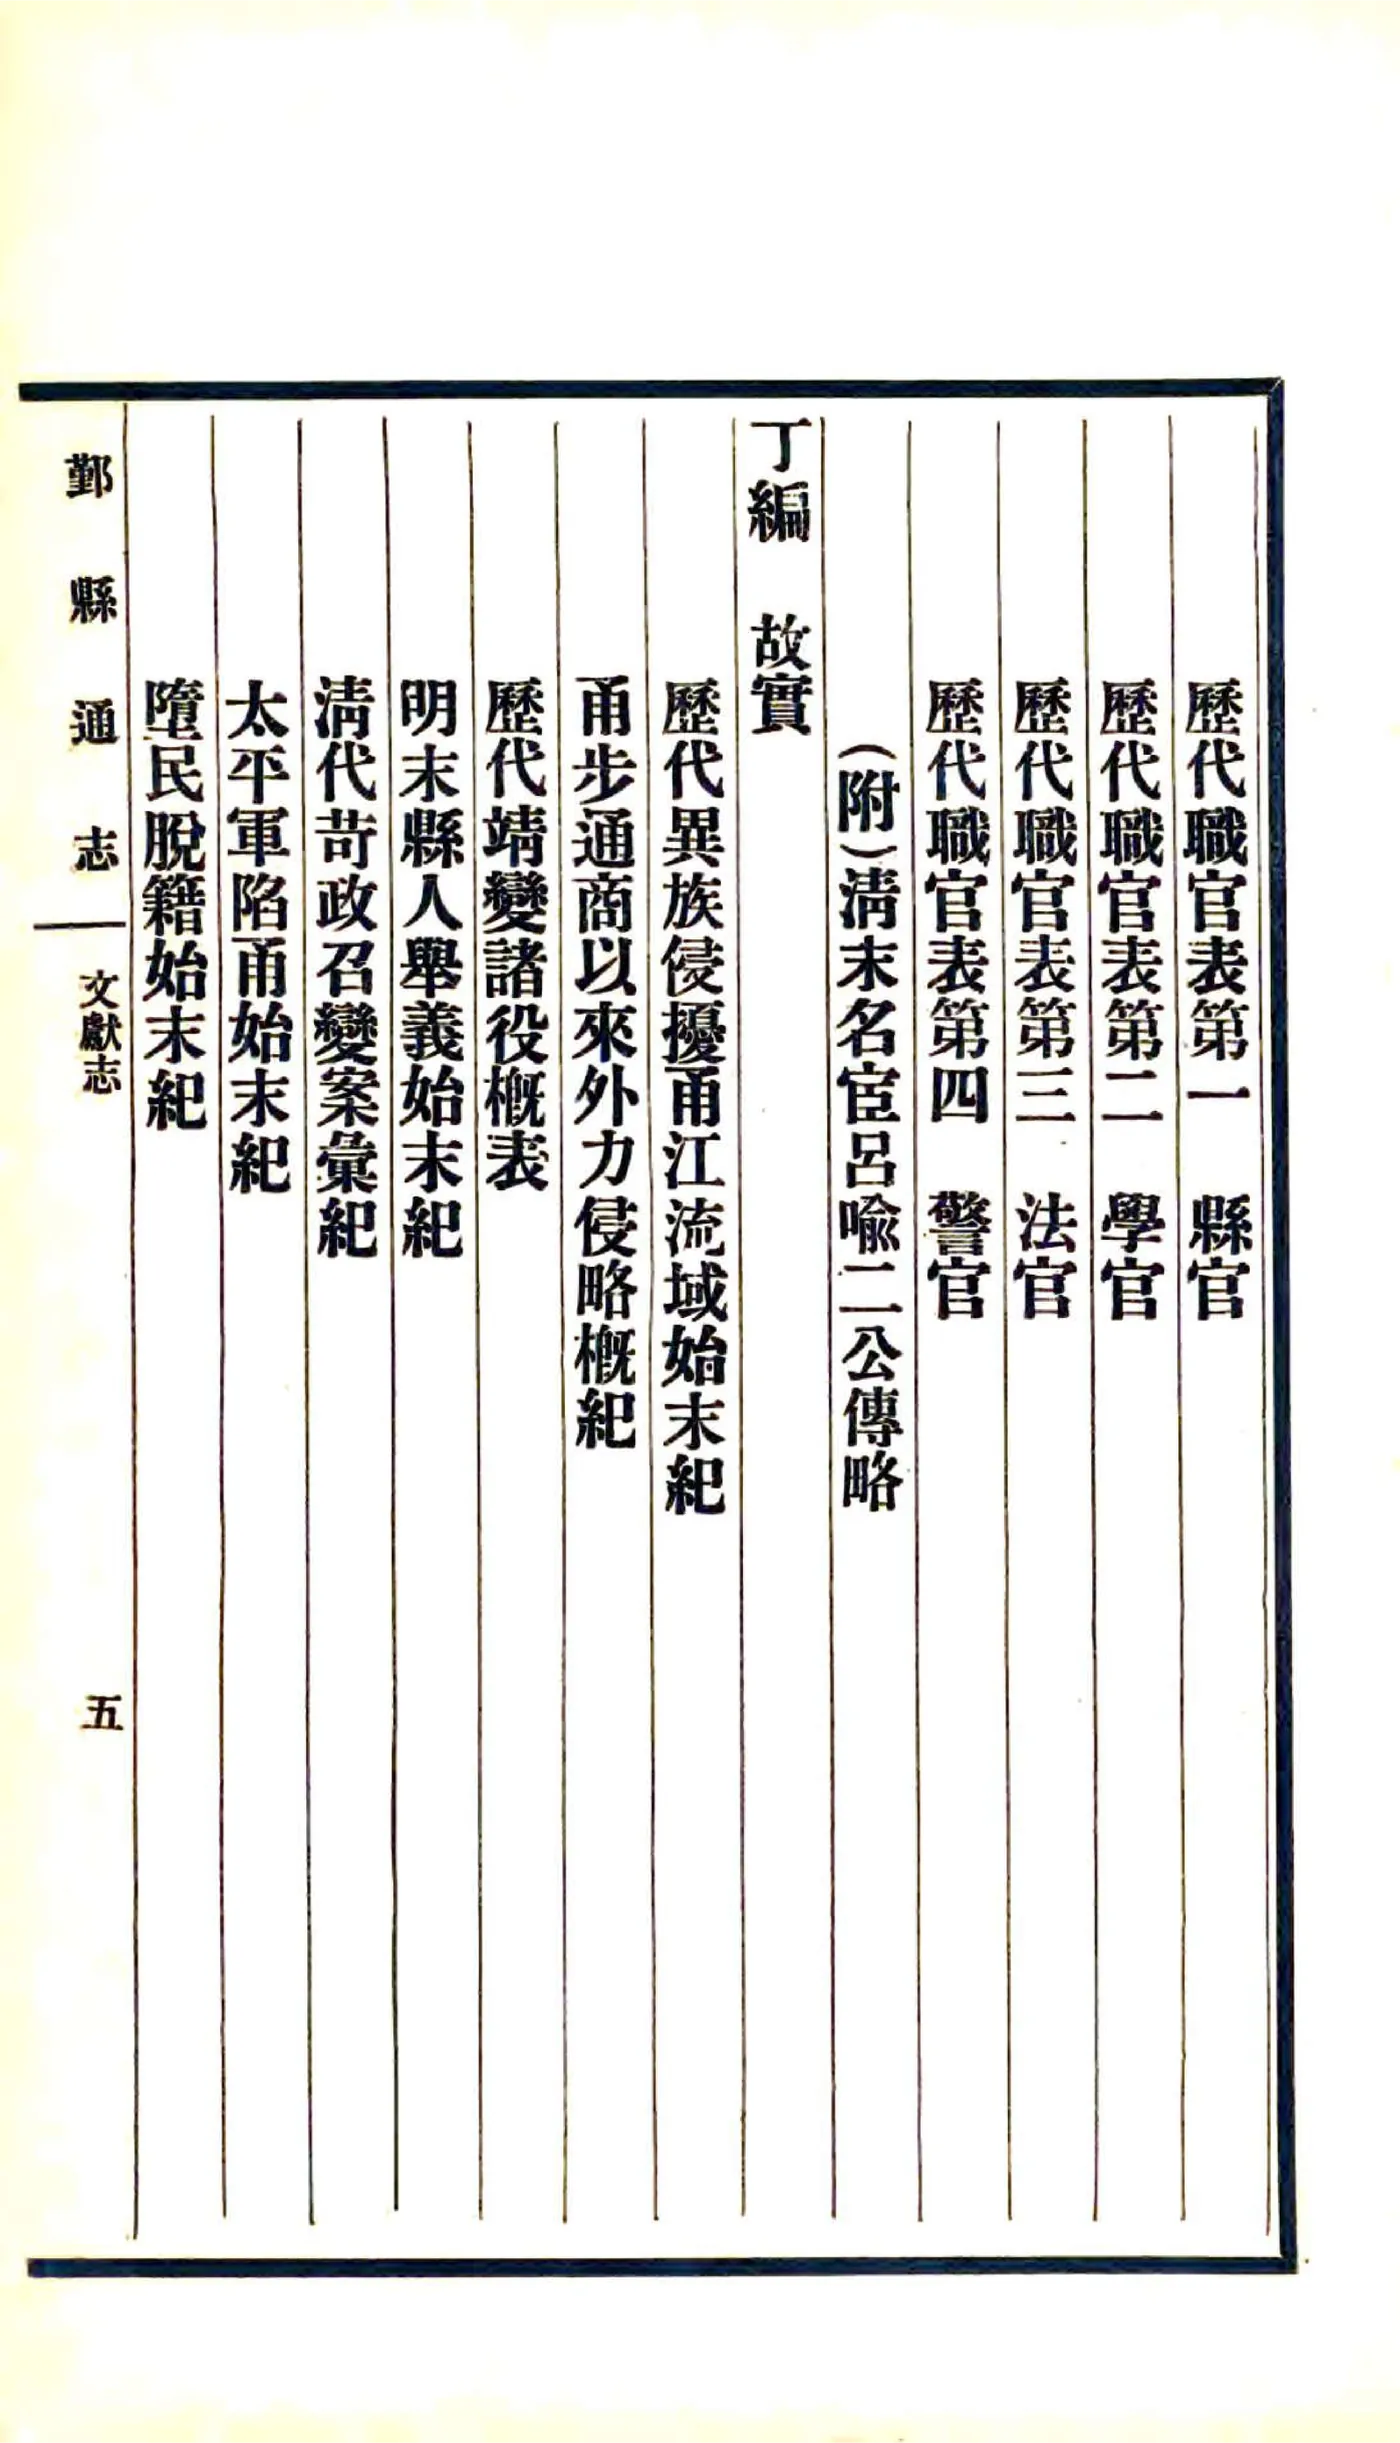 歷代職官表第一　縣官
歷代職官表第二　學官
歷代職官表第三　法官
歷代職官表第四　警官
（附）淸末名宦呂喩二公傳略
丁編　故實
歷代異族侵擾甬江流域始末紀
甬步通商以來外力侵略槪紀
歷代靖變諸役槪表
明末縣人舉義始末紀
淸代苛政召變案彙紀
太平軍陷甬始末紀
墮民脫籍始末紀
鄞縣通志 — 文獻志　五